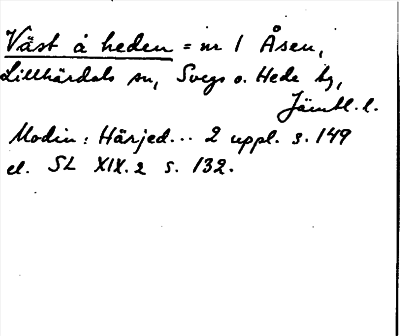 Väst å heden = nr 1 Åsen,
Lillhärdals sn, Svegs o. Hede tg,
Jämtl. l.
Modin: Härjed... 2 uppl. s. 149
el. SL XIX.2 s. 132.